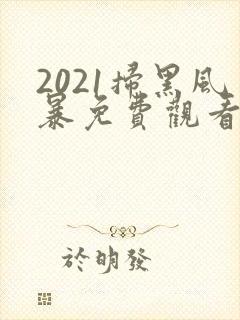 2021掃黑風
暴免費觀看
於明發